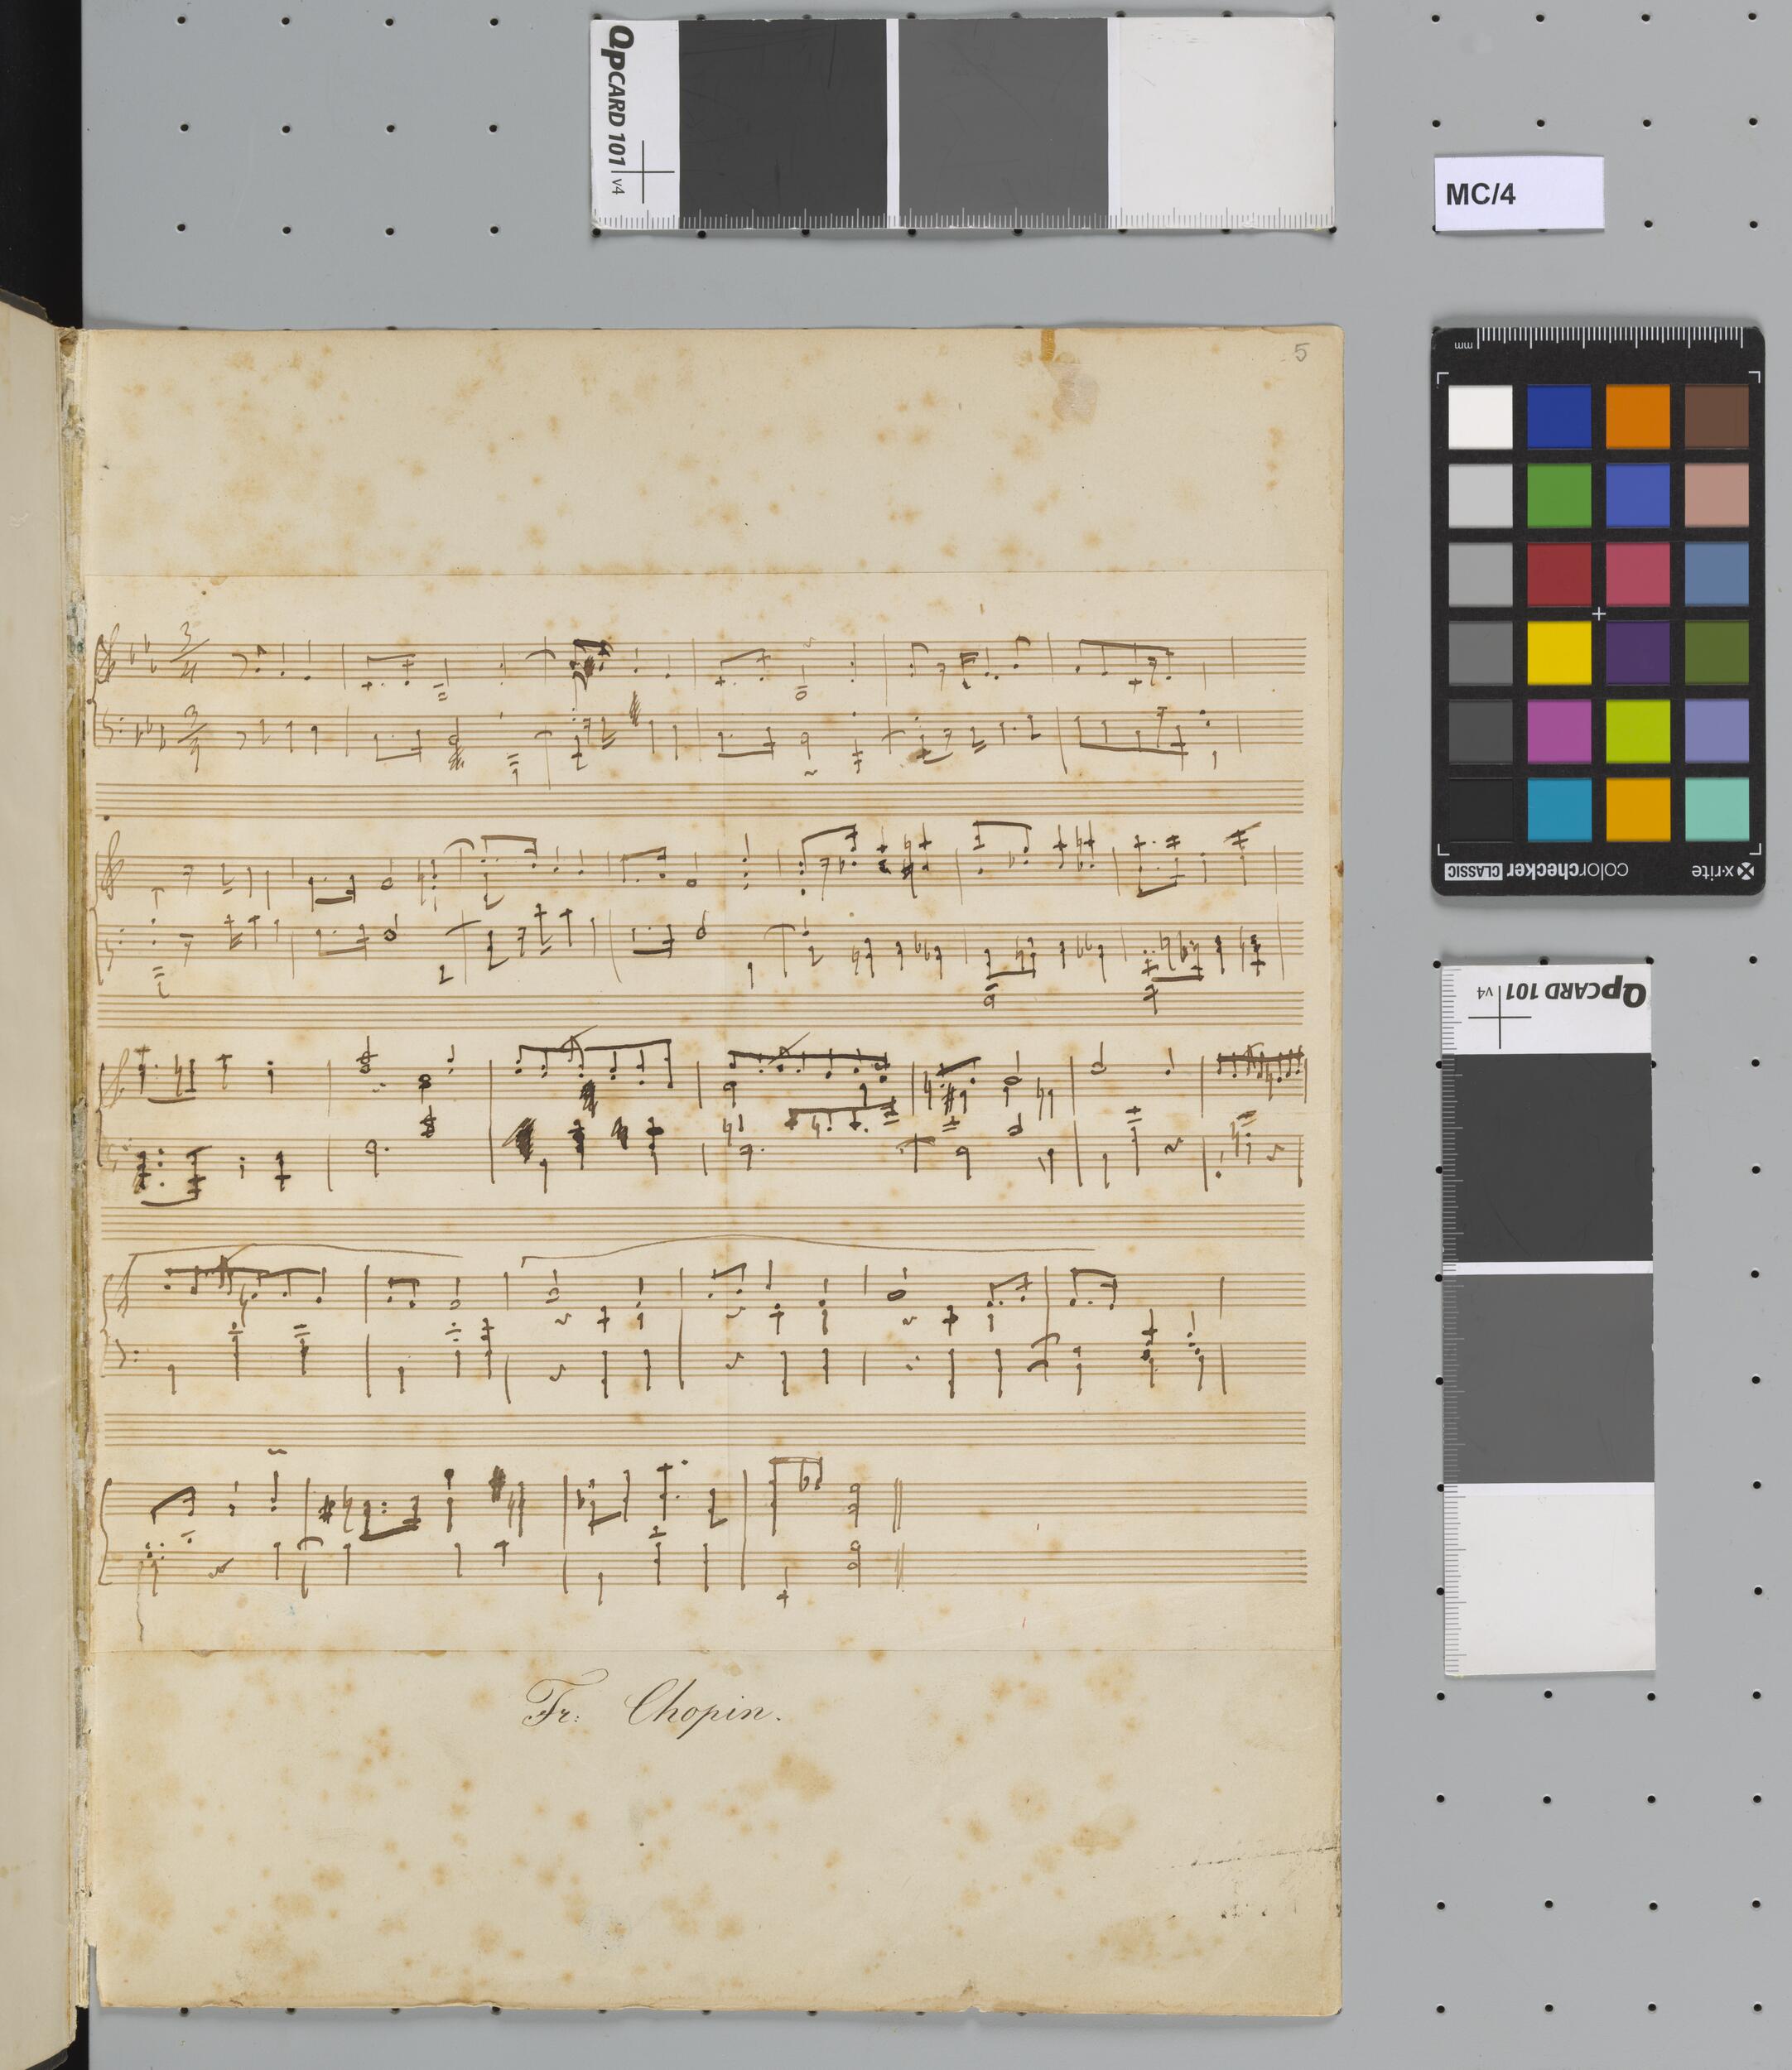 QpCARD 101 v4
MC/4
5
mm
3/4
3/4
Fr: Chopin.
x·rite colorchecker CLASSIC
QpCARD 101 v4